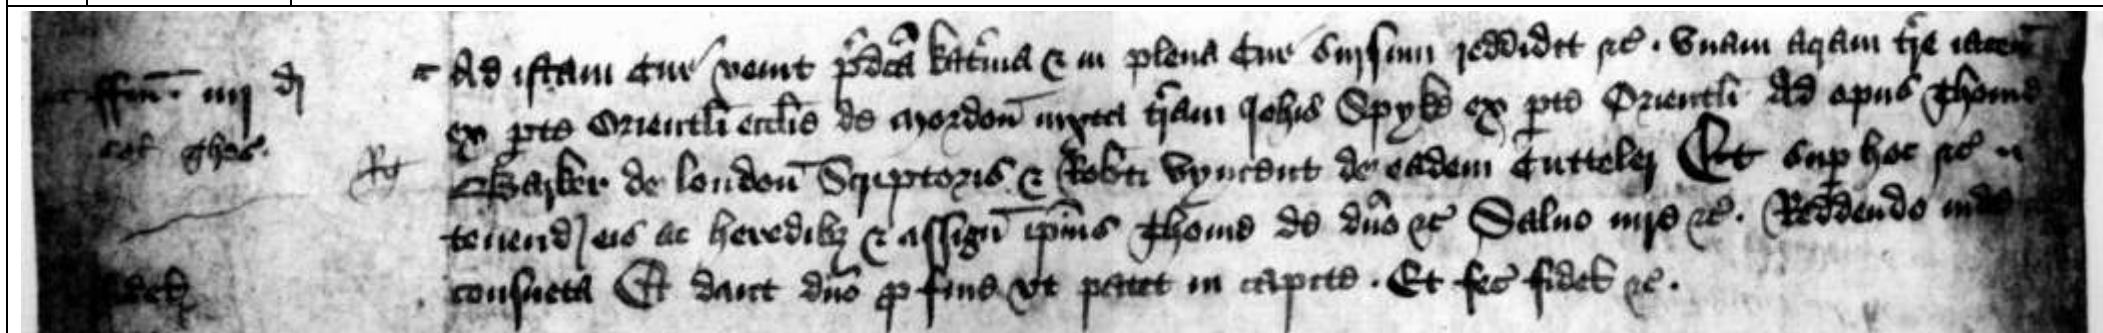 ffin͞ iiij d
Ad istam Cur' venit p̄dc̄a kat'ina & in plena Cur' sursum reddidit &c̄ . Vnam acr̄am t're iacen̄
ex p̱te Orientli eccl̄ie de mordon̄ iuxta t'ram Joh̄is Spyk ex p̱te Orientli Ad opus Thome
Barker de london̄ Scriptoris & Rob̄ti Vyncent de eadem Cutteler Et sup̱ hoc &c̄
tenend eis ac heredibȝ & assign̄ ip̄ius Thome de dn̄o &c̄ Saluo iure &c̄ . Reddendo inde
consueta Et dant dn̄o ꝓ fine vt patet in capite . Et fec̄ fidel̄ &c̄ .